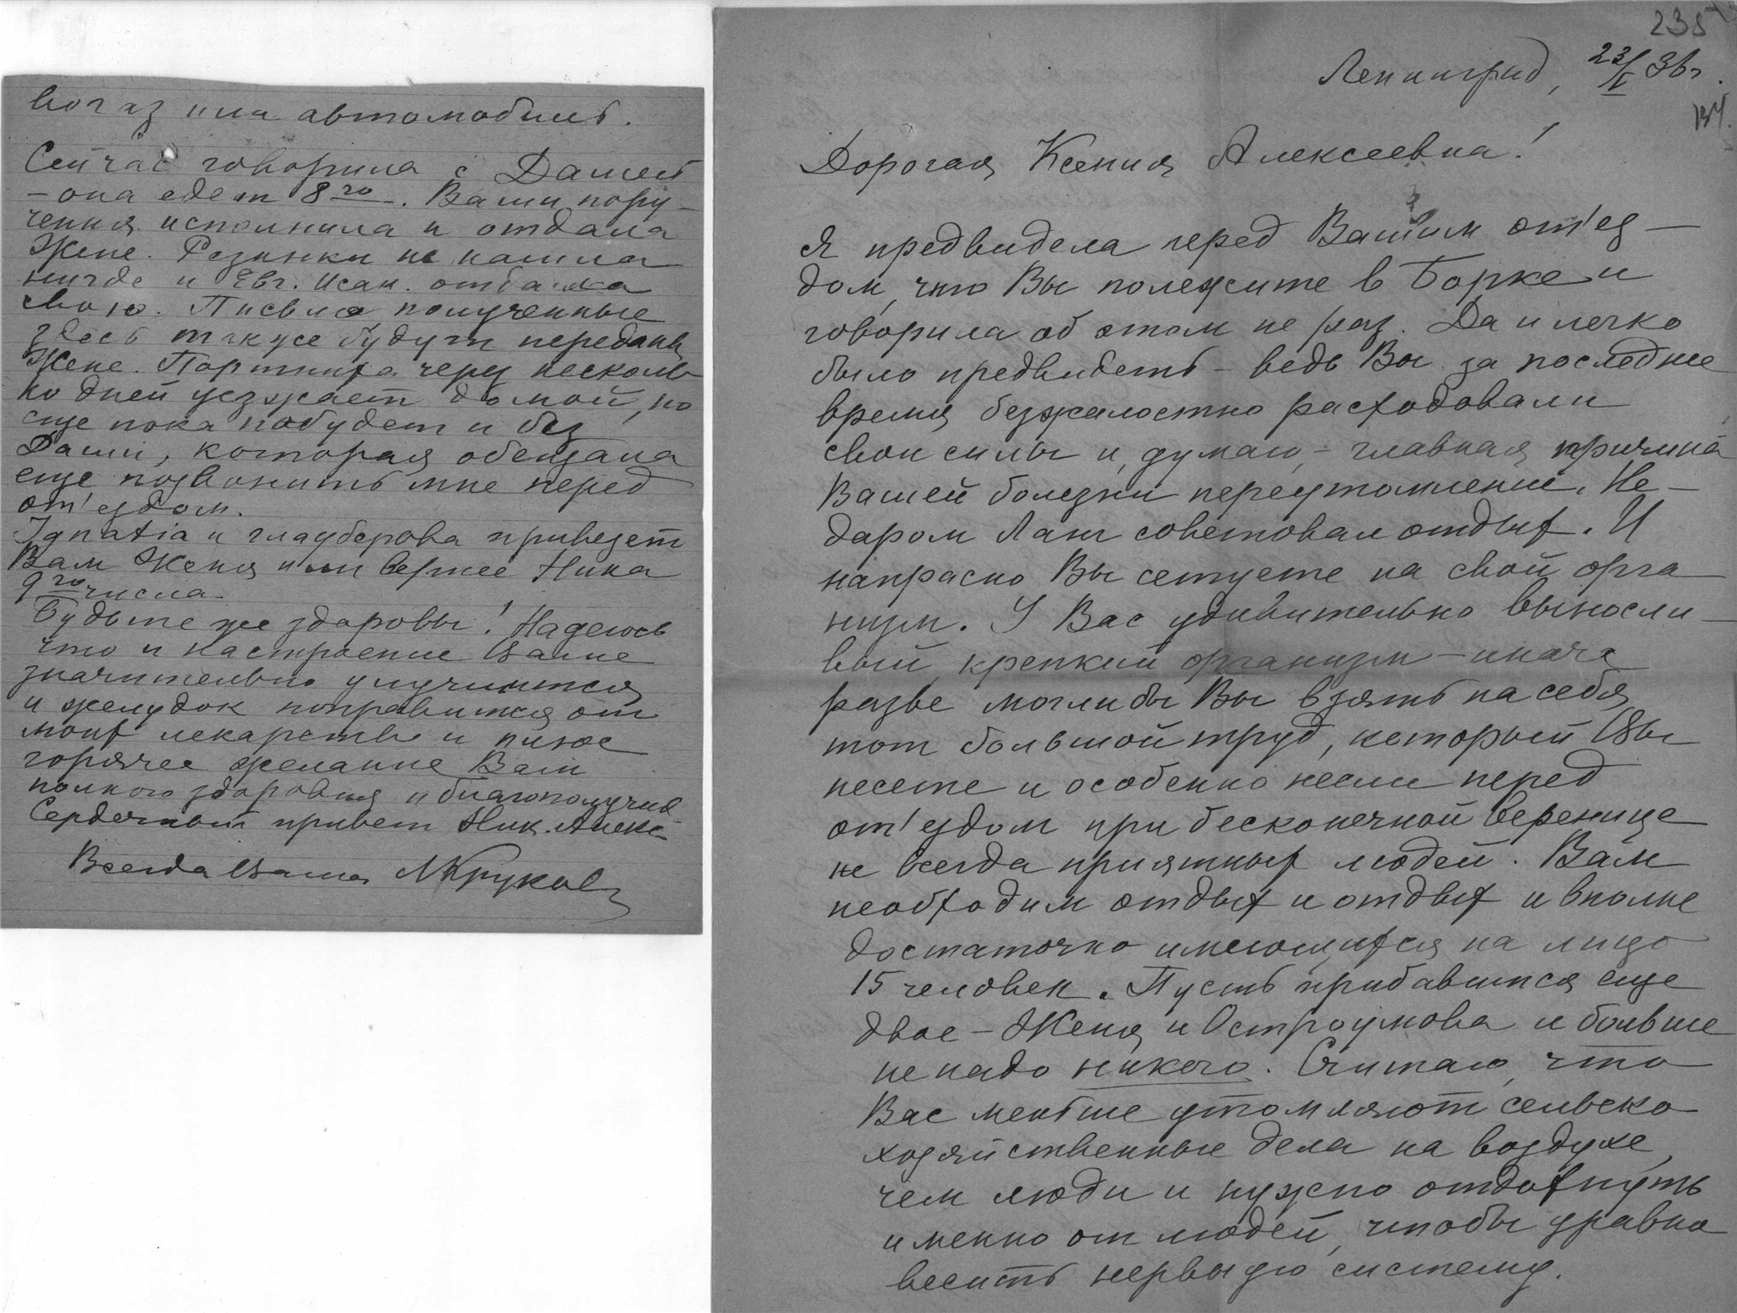 238
Ленинград, 23/V 36 г.
Дорогая Ксения Алексеевна!
Я предвидела перед Вашим от'ез-
дом, что Вы полежите в Борке и
говорила об этом не раз. Да и легко
было предвидеть - ведь Вы за последнее
время безжалостно расходовали
свои силы и, думаю, - главная причина
Вашей болезни переутомление. Не-
даром Ланг советовал отдых. И
напрасно Вы сетуете на свой орга-
низм. У Вас удивительно выносли-
вый, крепкий организм - иначе
разве могли бы Вы взять на себя
тот большой труд, который Вы
несете и особенно несли перед
от'ездом при бесконечной веренице
не всегда приятных людей. Вам
необходим отдых и отдых и вполне
достаточно имеющихся на лицо
15 человек. Пусть прибавится еще
двое - Женя и Остроумова и больше
не надо никого. Считаю, что
Вас меньше утомляют сельско
хозяйственные дела на воздухе,
чем люди и нужно отдохнуть
именно от людей, чтобы уравно
весить нервную систему.
или автомобиль.
Сейчас говорила с Дашей
- она едет 8го. Ваши пору-
чения исполнила и отдала
Жене. Резинки не нашла
нигде и Евг. Исак. отдала
свою. Письма полученные
здесь также будут переданы
Жене. Портниха через несколь
ко дней уезжает домой, но
еще пока побудет и без
Даши, которая обещала
еще позвонить мне перед
от'ездом.
Ignatia и глауберова привезет
Вам Женя или вернее Нина
9го числа.
Будьте же здоровы! Надеюсь
что и настроение Ваше
значительно улучшится
и желудок поправится от
моих лекарств и плюс
горячее желание Вам
полного здоровья и благополучия
Сердечный привет Ник. Алекс
Всегда Ваша МКруков